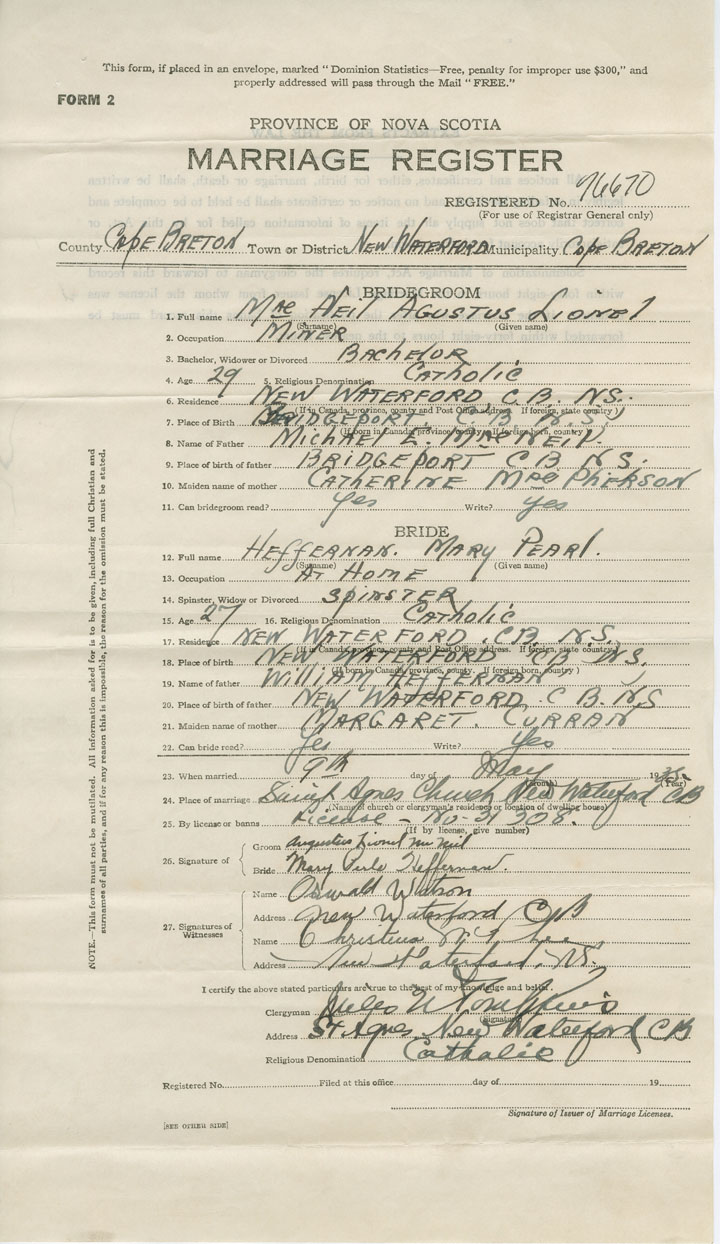 This form, if placed in an envelope, marked "Dominion Statistics—Free, penalty for improper use $300," and
properly addressed will pass through the Mail "FREE."
FORM 2
PROVINCE OF NOVA SCOTIA
MARRIAGE REGISTER
REGISTERED No. 76670
(For use of Registrar General only)
County Cape Breton Town or District New Waterford Municipality Cape Breton
BRIDEGROOM
1. Full name Mac Neil Agustus Lionel
(Surname) (Given name)
2. Occupation Miner
3. Bachelor, Widower or Divorced Bachelor
4. Age 29 5. Religious Denomination Catholic
6. Residence New Waterford C.B. N.S.
(If in Canada, province, county and Post Office address. If foreign, state country)
7. Place of Birth Bridgeport C.B. N.S.
(If born in Canada, province, county. If foreign born, country)
8. Name of Father Michael E. MacNeil.
9. Place of birth of father Bridgeport C.B. N.S.
10. Maiden name of mother Catherine Mac Pherson
11. Can bridegroom read? yes Write? yes
BRIDE
12. Full name Heffernan. Mary Pearl.
(Surname) (Given name)
13. Occupation At Home
14. Spinster, Widow or Divorced Spinster
15. Age 27 16. Religious Denomination Catholic
17. Residence New Waterford. C.B. N.S.
(If in Canada, province, county and Post Office address. If foreign, state country)
18. Place of birth New Waterford C.B. N.S.
(If born in Canada, province, county. If foreign born, country)
19. Name of father William Heffernan
20. Place of birth of father New Waterford. C B. N.S
21. Maiden name of mother Margaret. Curran
22. Can bride read? yes Write? yes
23. When married 9th day of May 19
(Month) (Year)
24. Place of marriage Saint Agnes Church New Waterford CB
(Name of church or clergyman's residence or location of dwelling house)
25. By license or banns License - No - 31308.
(If by license, give number)
26. Signature of
Groom Augustus Lionel Mc Neil
Bride Mary Perle Heffernan.
27. Signatures of Witnesses
Name Oswald Watson
Address New Waterford CB
Name Christena
Address New Waterford, N.S.
I certify the above stated particulars are true to the best of my knowledge and belief.
Clergyman Tompkins
(Signature)
Address St Agnes New Waterford C B
Religious Denomination Catholic
Registered No. Filed at this office day of 19
Signature of Issuer of Marriage Licenses.
[SEE OTHER SIDE]
NOTE.—This form must not be mutilated. All information asked for is to be given, including full Christian and
surnames of all parties, and if for any reason this is impossible, the reason for the omission must be stated.